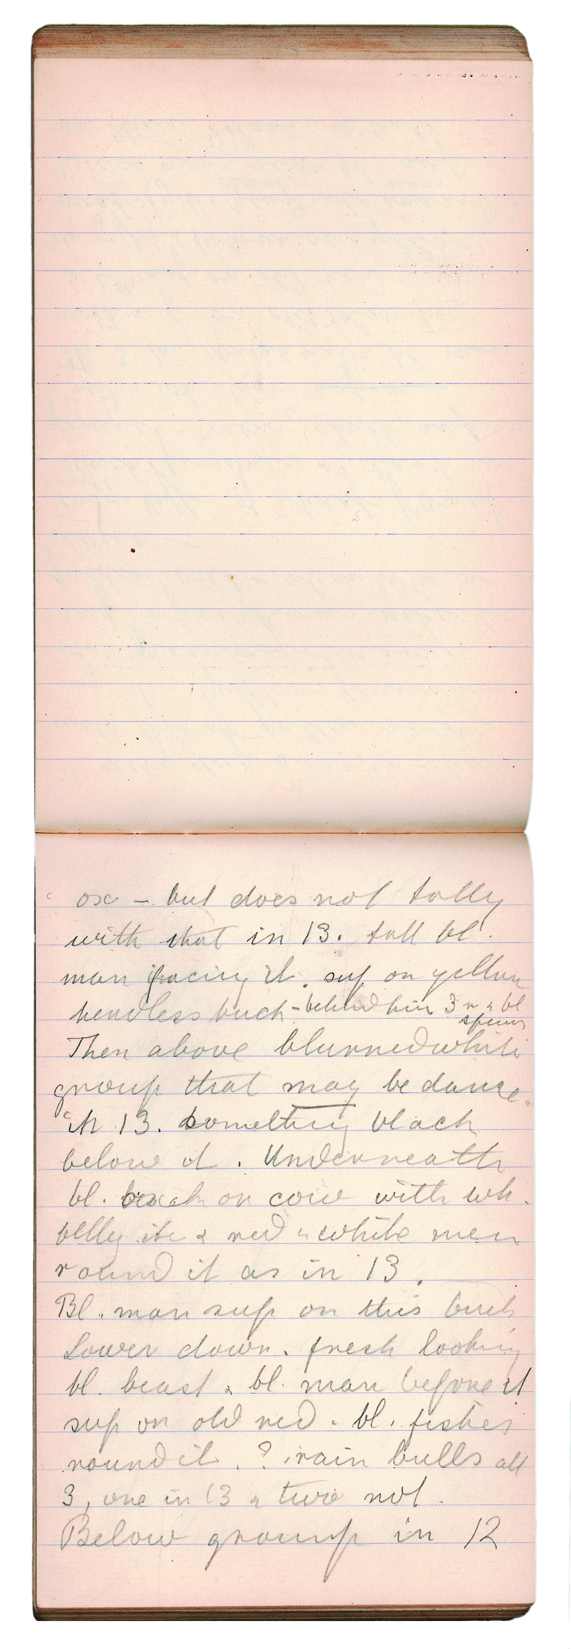 ox – but does not tally
with that in 13. tall bl.
man facing it. sup on yellow
headless buck – behind him 3 r & bl
spears
Then above blurred white
group that may be dance
in 13. Something black
below it. Underneath
bl. buck or cow with wh.
belly etc & red & white men
round it as in 13.
Bl. man sup on this buck
Lower down. fresh looking
bl. beast & bl. man before it
sup on old red. bl. fishes
round it. ? rain bulls all
3, one in 13 & two not.
Below group in 12